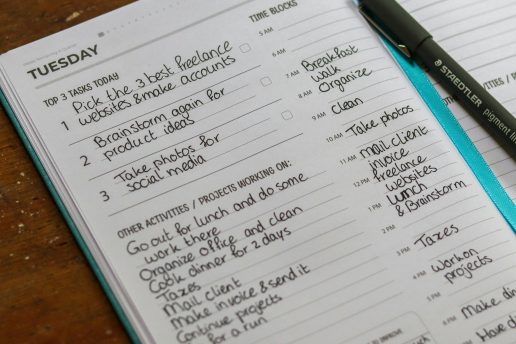 TUESDAY
TOP 3 TASKS TODAY
1 Pick the 3 best freelance
websites & make accounts
2 Brainstorm again for
product ideas
3 Take photos for
social media
OTHER ACTIVITIES / PROJECTS WORKING ON:
Go out for lunch and do some
work there
Organize office and clean
Cook dinner for 2 days
Taxes
Mail client
Make invoice & send it
Continue projects
for a run
TIME BLOCKS
5 AM
6 AM
7 AM Breakfast
walk
8 AM Organize
9 AM Clean
10 AM Take photos
11 AM Mail client
invoice
12 PM freelance
websites
1 PM lunch
& Brainstorm
3 PM Taxes
4 PM work on
projects
5 PM
6 PM Make
STAEDTLER
pigment
OTHER ACTIVITIES